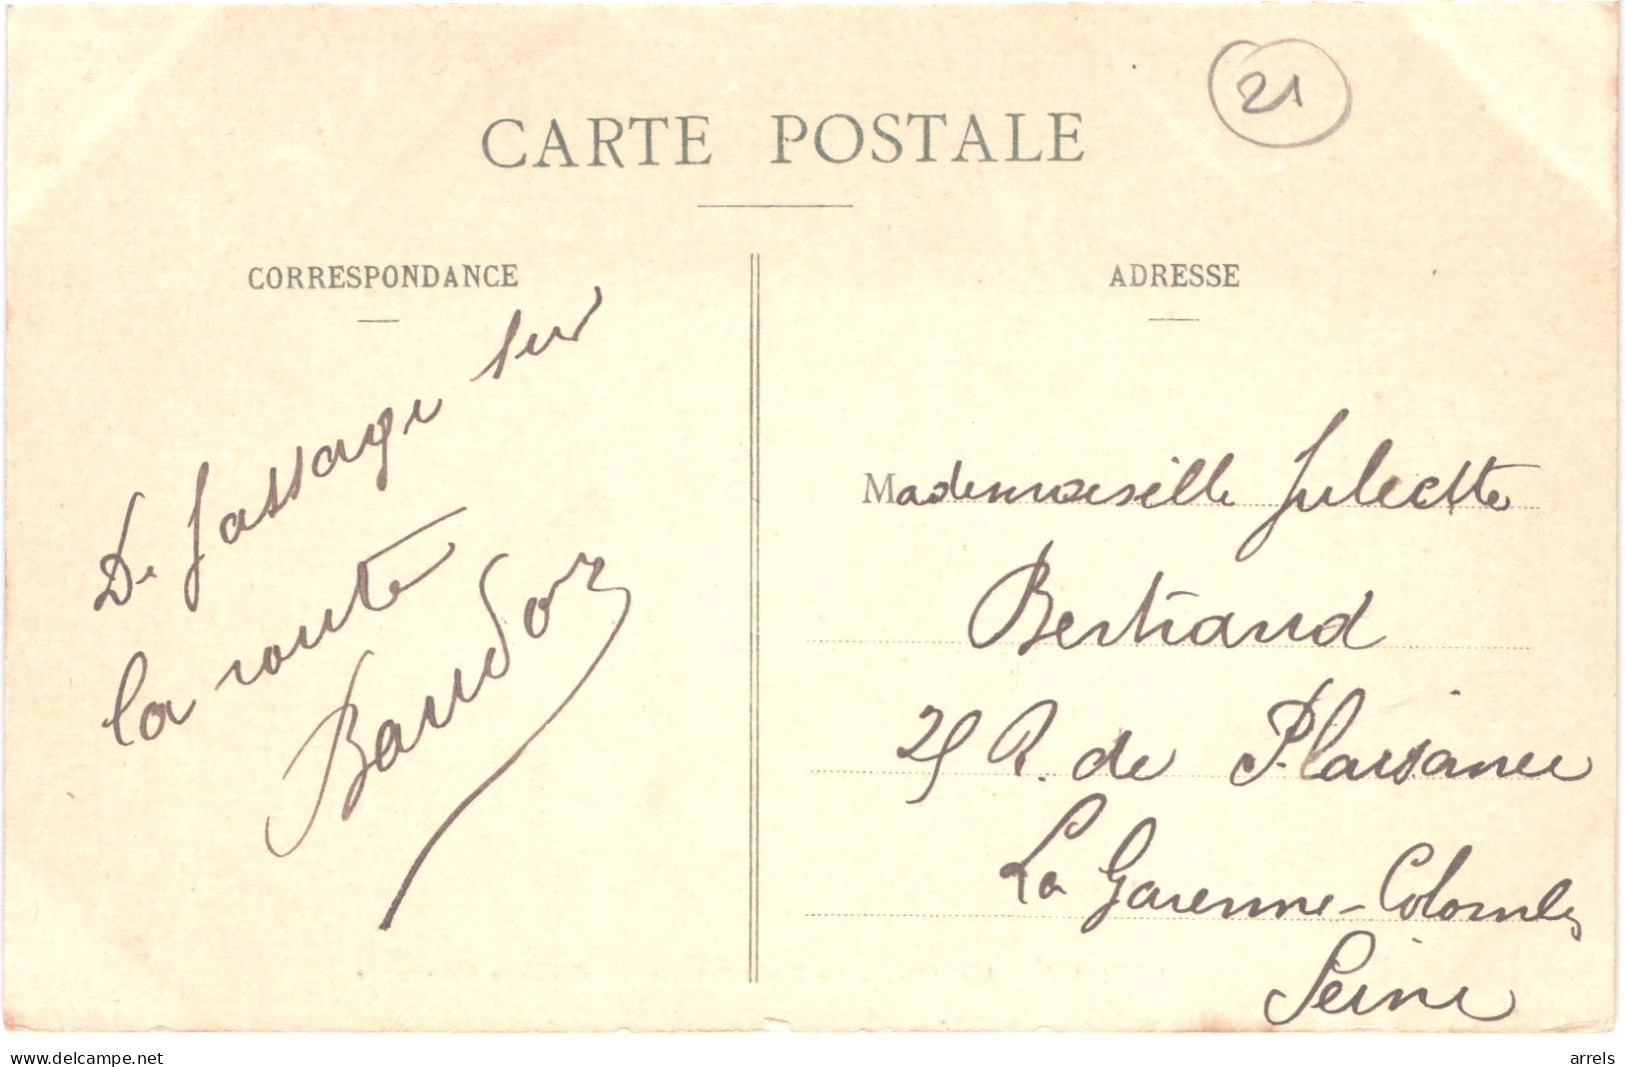 21
CARTE POSTALE
CORRESPONDANCE
De passage sur
la route
Baudoz
ADRESSE
Mademoiselle Juliette
Bertrand
25 R. de Plaisance
La Garenne-Colombes
Seine
www.delcampe.net
arrels